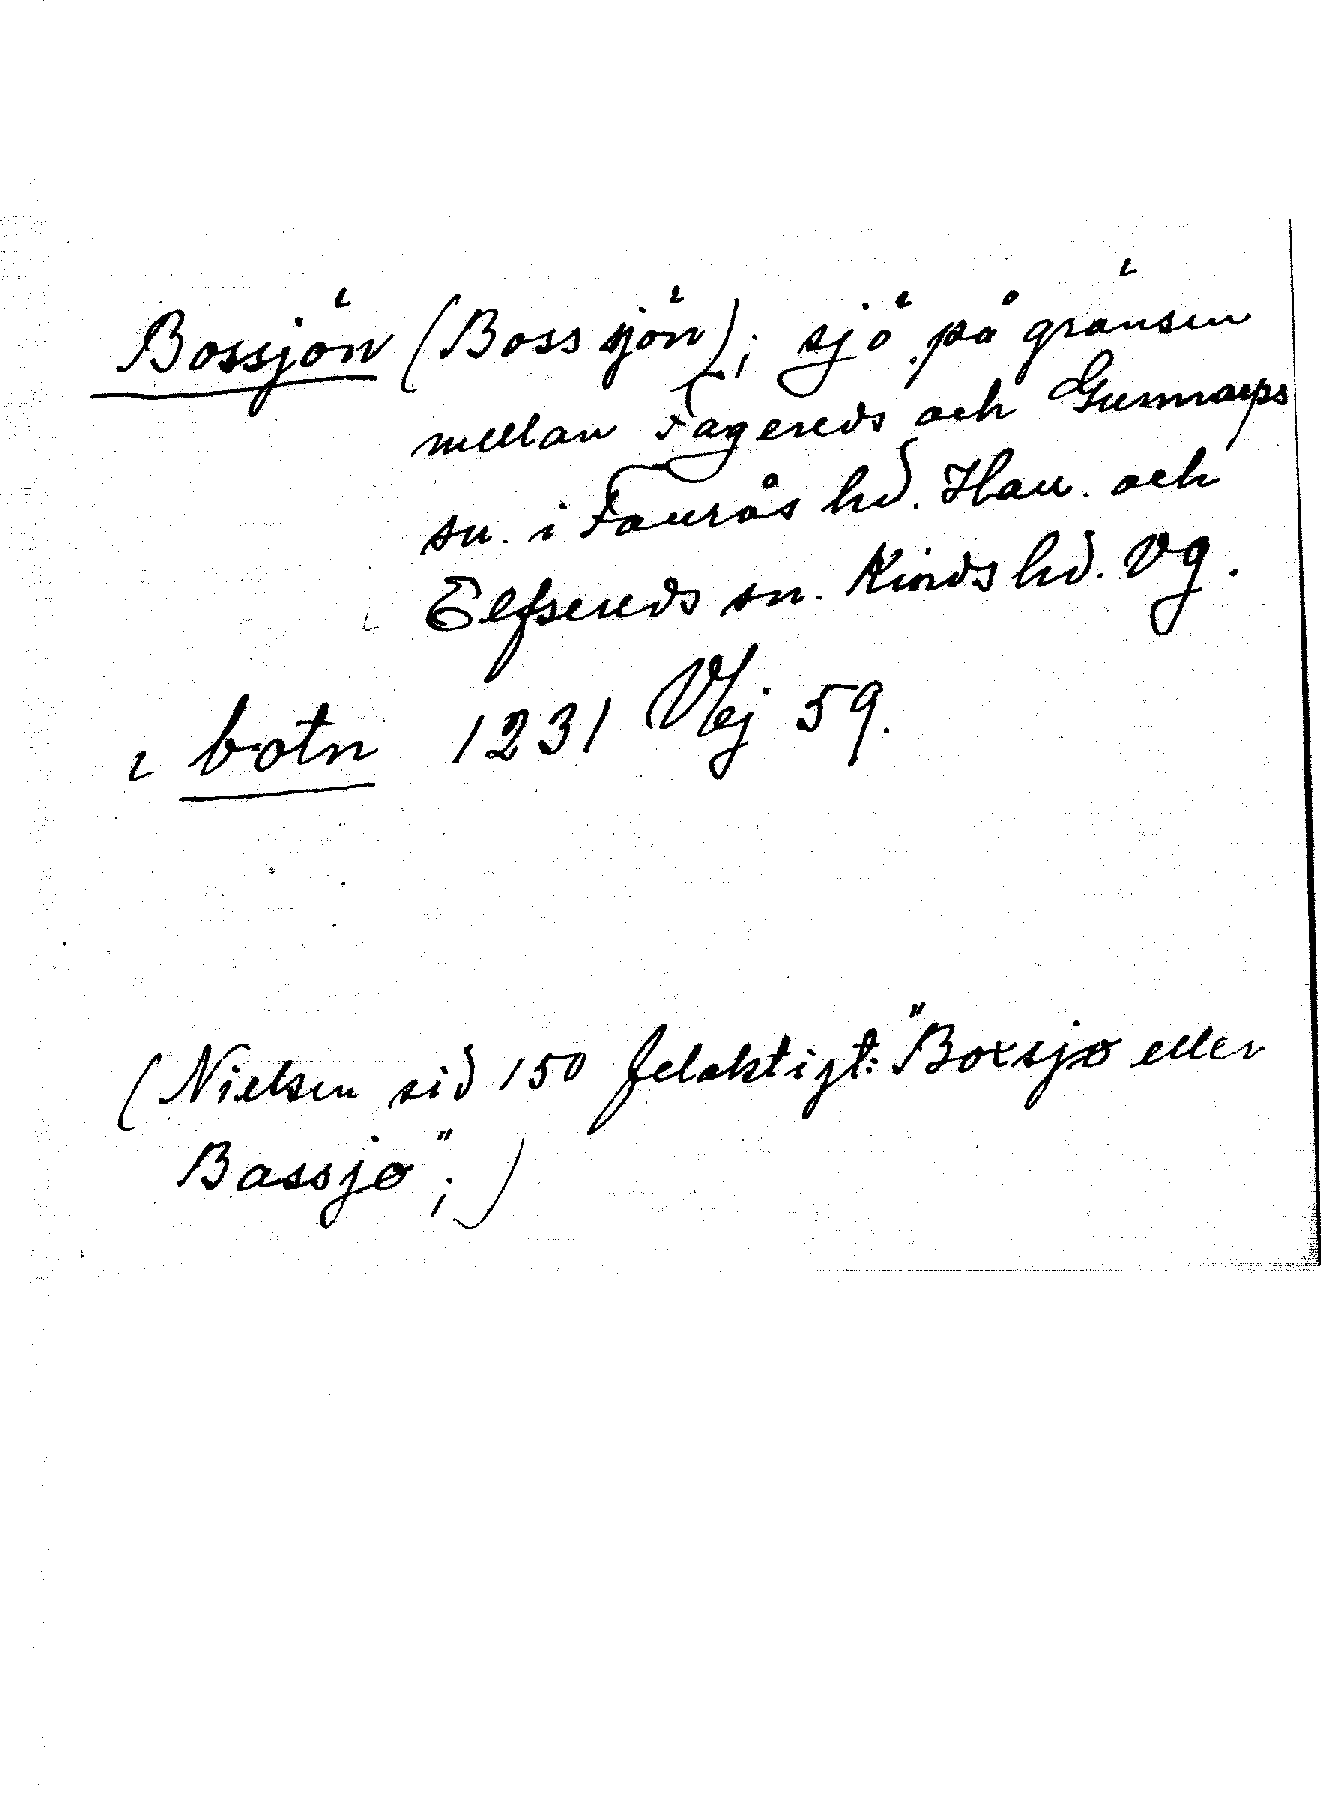 Bossjön (Boss sjön); sjö på gränsen
mellan Fagereds och Gunnarps
sn. i Faurås hd. Hall. och
Elfsereds sn. Kinds hd. Vg.
i botn 1231 Vlej 59.
(Nielsen sid 150 felaktigt: "Boxsjø eller
Bassjø";)